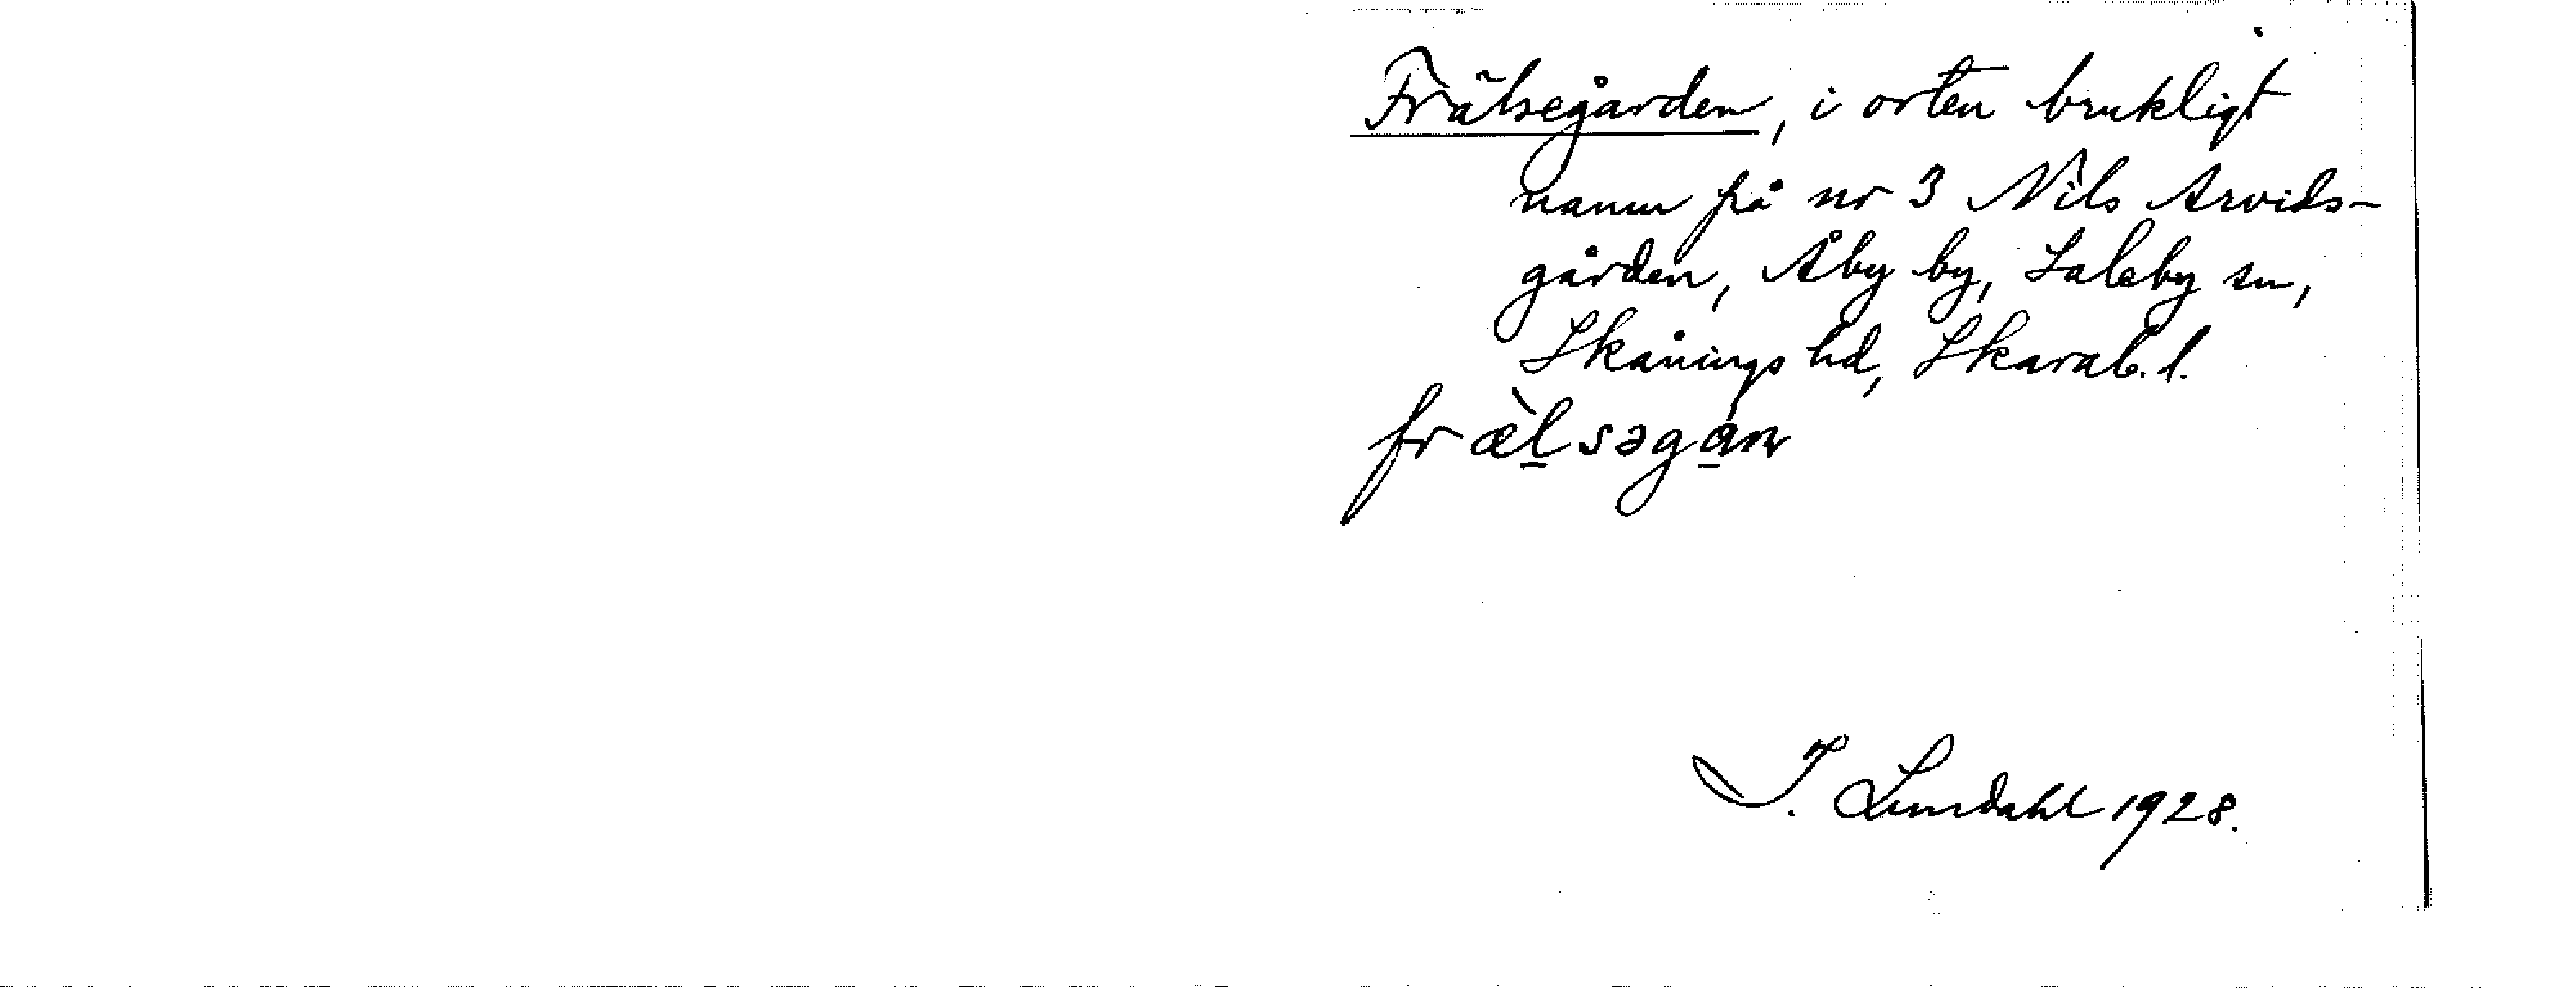 Frälsegården, i orten brukligt
namn på nr 3 Nils Arvids-
gården, Åby by, Saleby sn,
Skånings hd, Skarab. l.
fræ̀lsəgán
I. Lundahl 1928.